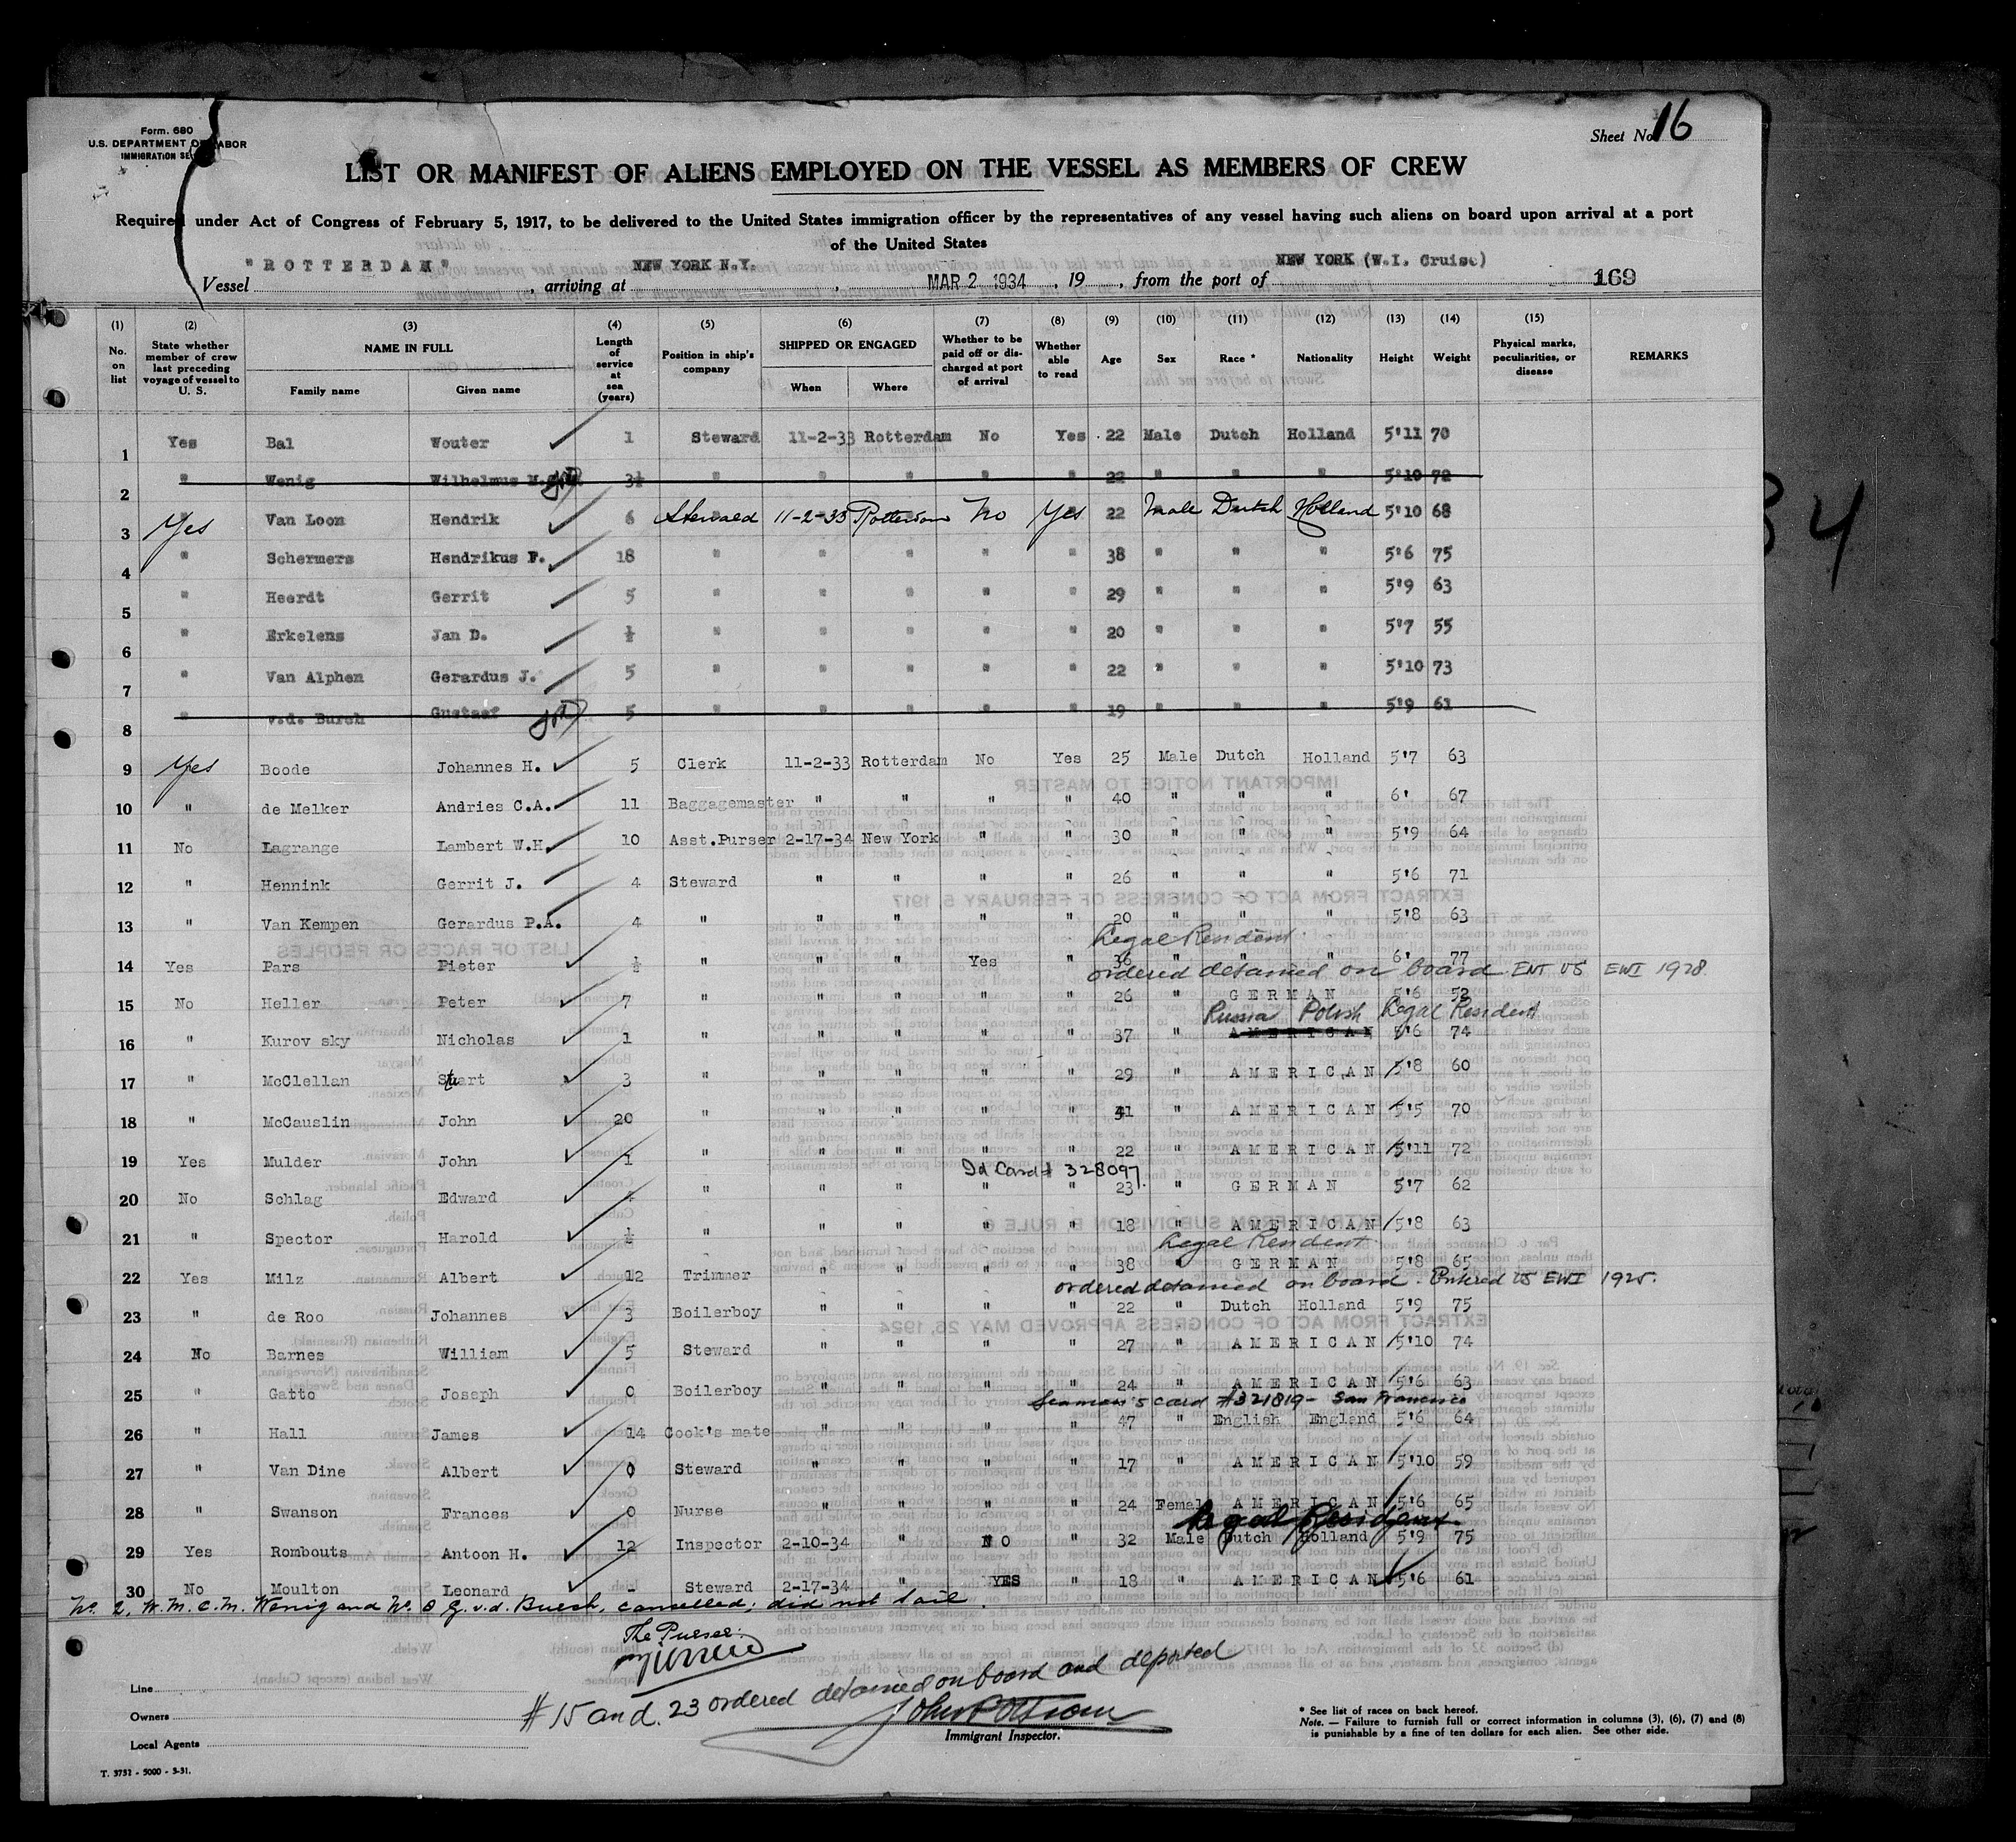 Form. 680
U.S. DEPARTMENT OF LABOR
IMMIGRATION SE
Sheet No. 16
LIST OR MANIFEST OF ALIENS EMPLOYED ON THE VESSEL AS MEMBERS OF CREW
Required under Act of Congress of February 5, 1917, to be delivered to the United States immigration officer by the representatives of any vessel having such aliens on board upon arrival at a port
of the United States
Vessel "ROTTERDAM", arriving at NEW YORK N.Y., MAR 2 1934, 19, from the port of NEW YORK (W.I. Cruise) 169
(1) (2) (3) (4) (5) (6) (7) (8) (9) (10) (11) (12) (13) (14) (15)
No. on list State whether member of crew last preceding voyage of vessel to U. S. NAME IN FULL Family name Given name Length of service at sea (years) Position in ship's company SHIPPED OR ENGAGED When Where Whether to be paid off or discharged at port of arrival Whether able to read Age Sex Race * Nationality Height Weight Physical marks, peculiarities, or disease REMARKS
1 Yes Bal Wouter 1 Steward 11-2-33 Rotterdam No Yes 22 Male Dutch Holland 5'11 70
2 " Wenig Wilhelmus M. 3½ " " " " " 22 " " " 5'10 72
3 Yes Van Loon Hendrik 6 Steward 11-2-33 Rotterdam No Yes 22 Male Dutch Holland 5'10 68
4 " Schermers Hendrikus F. 18 " " " " " 38 " " " 5'6 75
5 " Heerdt Gerrit 5 " " " " " 29 " " " 5'9 63
6 " Erkelens Jan D. ½ " " " " " 20 " " " 5'7 55
7 " Van Alphen Gerardus J. 5 " " " " " 22 " " " 5'10 73
8 " v.d. Burch Gustaaf 5 " " " " " 19 " " " 5'9 61
9 Yes Boode Johannes H. 5 Clerk 11-2-33 Rotterdam No Yes 25 Male Dutch Holland 5'7 63
10 " de Melker Andries C.A. 11 Baggagemaster " " " " 40 " " " 6' 67
11 No Lagrange Lambert W.H. 10 Asst.Purser 2-17-34 New York " " 30 " " " 5'9 64
12 " Hennink Gerrit J. 4 Steward " " " " 26 " " " 5'6 71
13 " Van Kempen Gerardus P.A. 4 " " " " " 20 " " " 5'8 63
Legal Resident
14 Yes Pars Pieter ½ " " " Yes " 36 " " " 6' 77
ordered detained on board ENT US EWI 1928
15 No Heller Peter 7 " " " " " 26 " GERMAN 5'6 52
Russia Polish Legal Resident
16 " Kurov sky Nicholas 1 " " " " " 37 " AMERICAN 5'6 74
17 " McClellan Stuart 3 " " " " " 29 " AMERICAN 5'8 60
18 " McCauslin John 20 " " " " " 41 " AMERICAN 5'5 70
19 Yes Mulder John 1 " " " " " 22 " AMERICAN 5'11 72
Id Card # 328097
20 No Schlag Edward 4 " " " " " 23 " GERMAN 5'7 62
21 " Spector Harold ½ " " " " " 18 " AMERICAN 5'8 63
Legal Resident
22 Yes Milz Albert 12 Trimmer " " " " 38 " GERMAN 5'8 65
ordered detained on board. Entered US EWI 1925.
23 " de Roo Johannes 3 Boilerboy " " " " 22 " Dutch Holland 5'9 75
24 No Barnes William 5 Steward " " " " 27 " AMERICAN 5'10 74
25 " Gatto Joseph 0 Boilerboy " " " " 24 " AMERICAN 5'6 63
Seaman's card #321819 - San Francisco
26 " Hall James 14 Cook's mate " " " " 47 " English England 5'6 64
27 " Van Dine Albert 0 Steward " " " " 17 " AMERICAN 5'10 59
28 " Swanson Frances 0 Nurse " " " " 24 Femal AMERICAN 5'6 65
Legal Resident
29 Yes Rombouts Antoon H. 12 Inspector 2-10-34 " NO " 32 Male Dutch Holland 5'9 75
30 No Moulton Leonard - Steward 2-17-34 " YES " 18 " AMERICAN 5'6 61
No. 2, W.M.C.M. Wenig and No. 8 G.v.d. Burch, cancelled; did not sail.
The Purser:
# 15 and 23 ordered detained on board and deported
Line
Owners
Local Agents
Immigrant Inspector.
* See list of races on back hereof.
Note. — Failure to furnish full or correct information in columns (3), (6), (7) and (8)
is punishable by a fine of ten dollars for each alien. See other side.
T. 3752 - 5000 - 3-31.
34